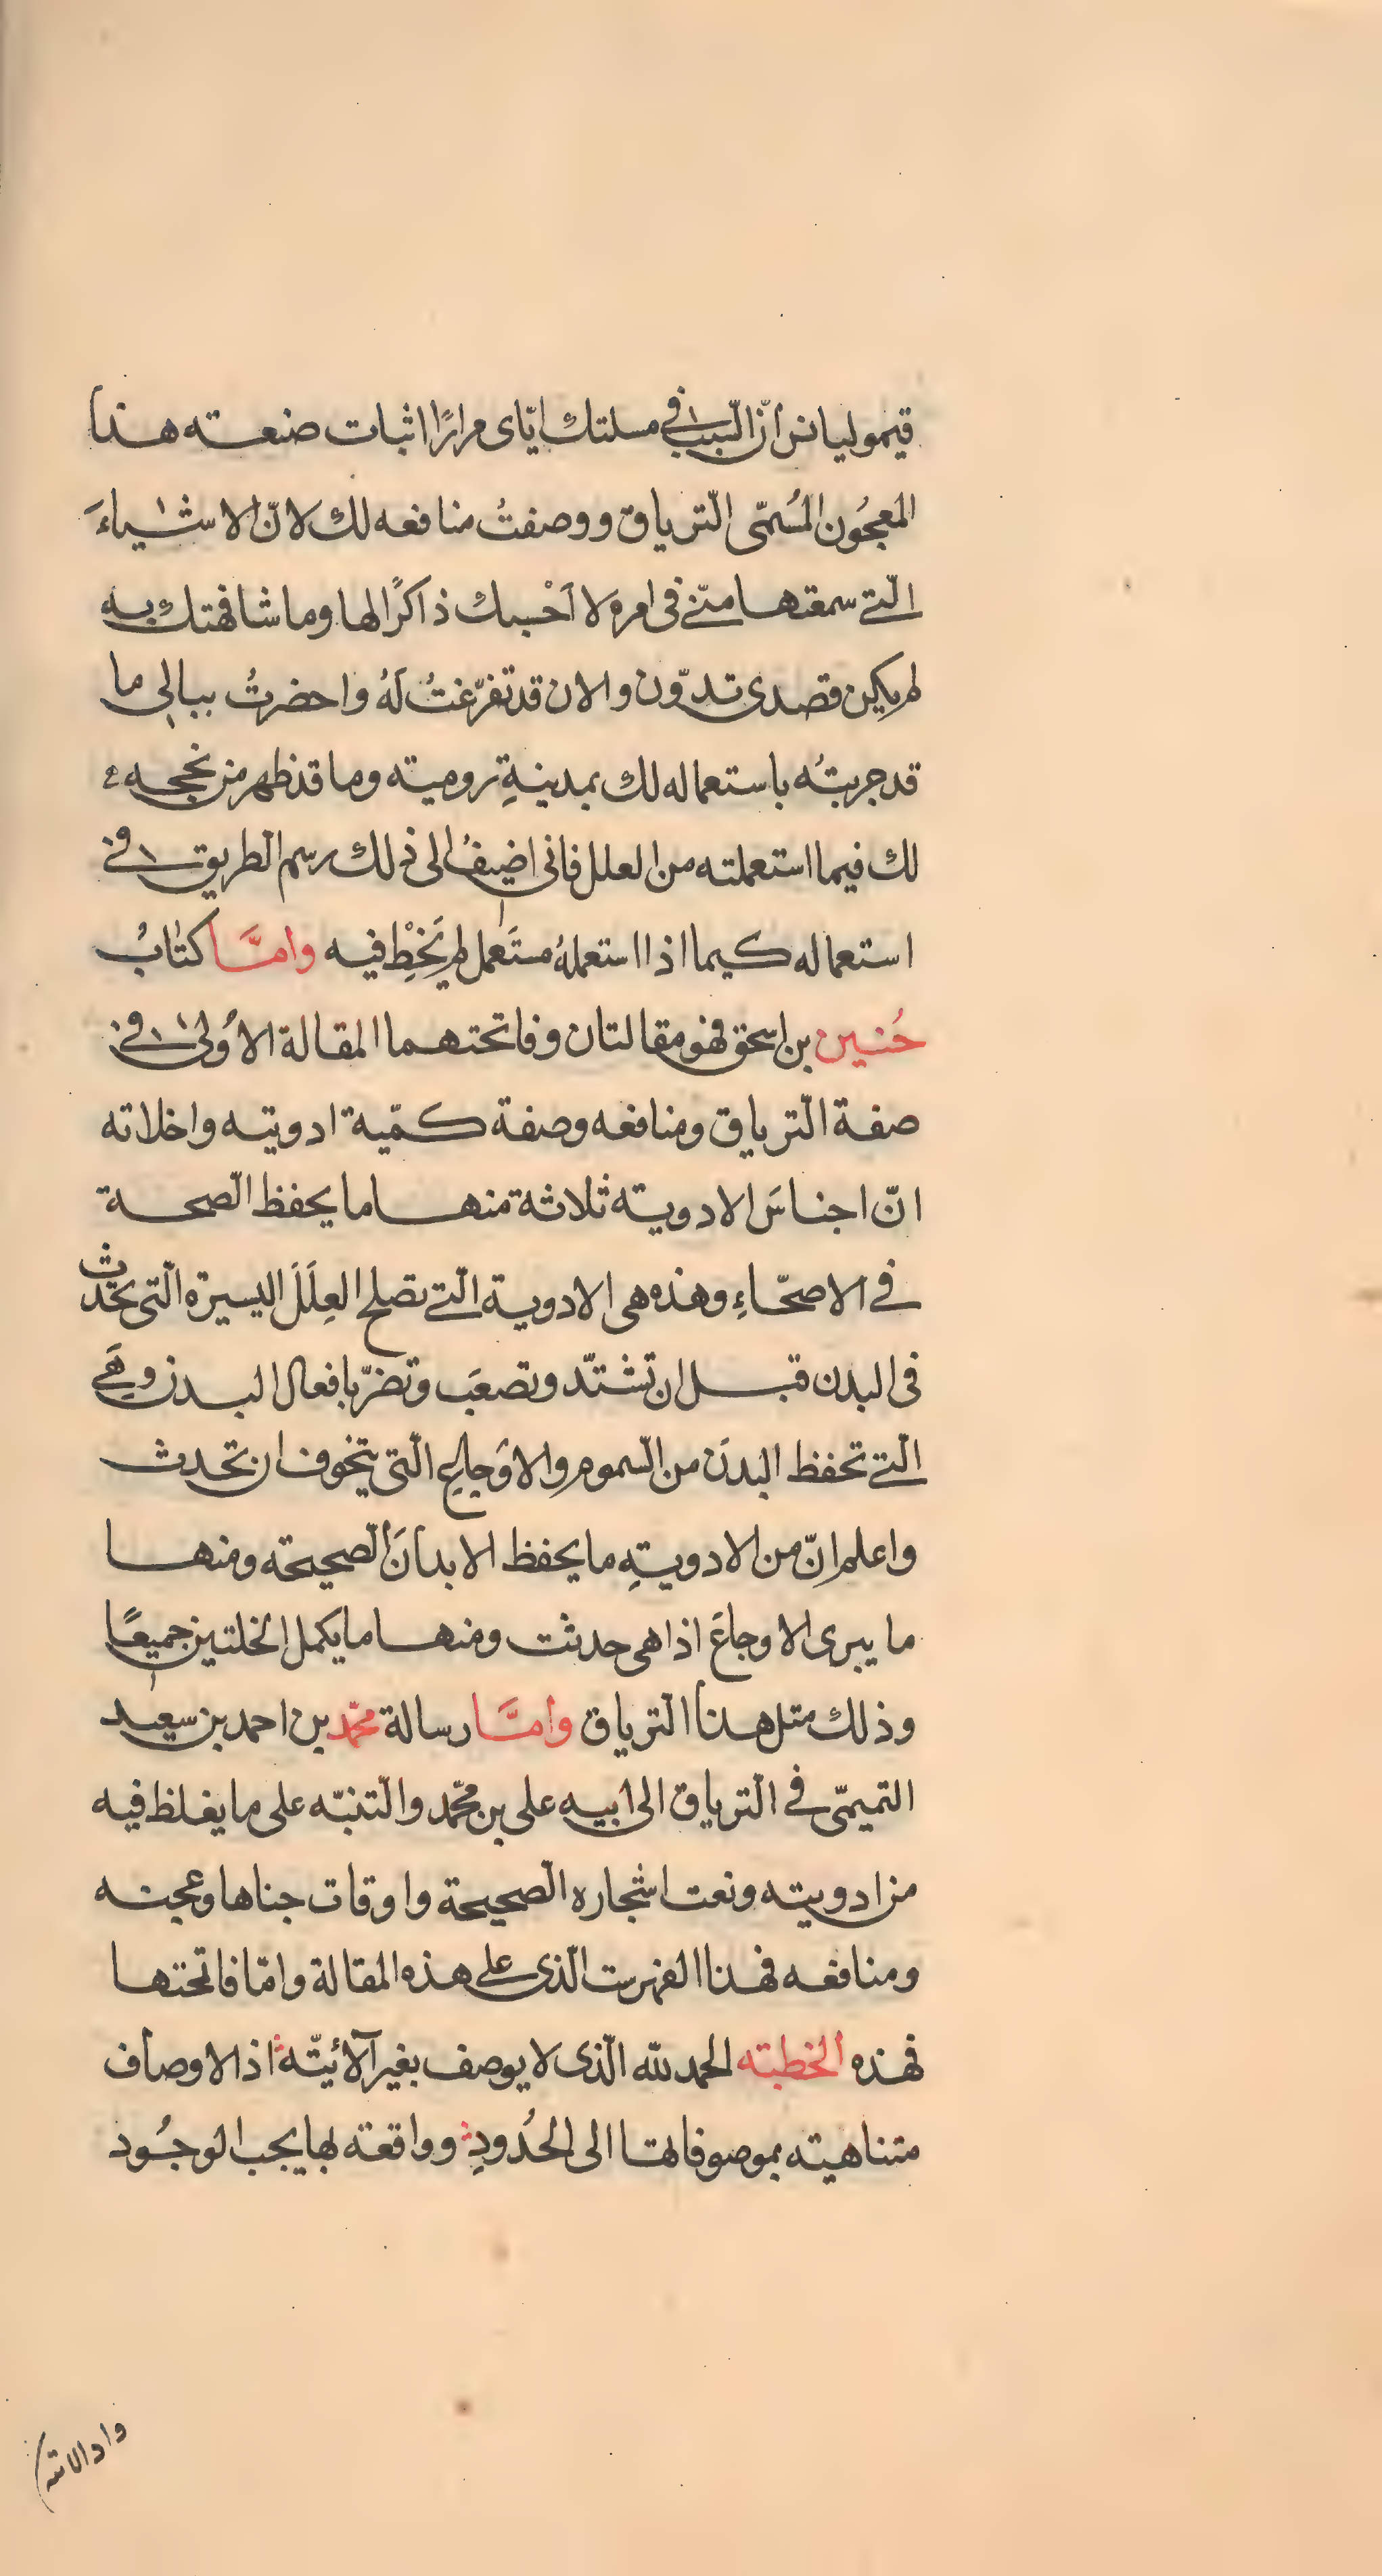 قيموليانس انّ السّبب فى مسلتك ايّاى مرارًا اثبات صنعته هذا
المعجُون المُسمّى التّرياق ووصفتُ منافعه لك لانّ الاشياءَ
الّتى سمعتها منّى فى امره لا اَحْسبك ذاكرًا لها وما شافهتك به
لم يكن قصدى تدوّن والان قد تفرّغتُ لَهُ واحضرتُ ببالى ما
قد جربتُه باستعماله لك بمدينةِ روميته وما قد ظهر من نجحه
لك فيما استعملته من العلل فانى اضيفُ الى ذلك رسم الطريق فى
استعماله كيما اذا استعملهُ مستَعمل لم يَخْطِ فيه وامَّا كتابُ
حُنين بن اسحق فهو مقالتان وفاتحتهما المقالة الاُولى فى
صفة التّرياق ومنافعه وصفة كمّية ادويته واخلاته
انّ اجناسَ الادويته ثلاثة منها ما يحفظ الصّحة
فى الاصحّاءِ وهذه هى الادوية الّتى تصلح العِلَلَ اليسيرة الّتى تحدث
فى البدن قبل ان تشتدّ وتصعَب وتضرّ بافعال البدن وهَى
الّتى تحفظ البدنَ من السّموم والاوَجاعِ الّتى يتخوف ان تحدث
واعلم انّ من الادويتِه ما يحفظ الابدانَ الصّحيحته ومنها
ما يبرى الاوجاعَ اذا هى حدثت ومنها ما يكمل الخلتين جميعًا
وذلك مثل هذا التّرياق وامَّا رسالة محمّد بن احمد بن سعيد
التميمّى فى التّرياق الى ابيه على بن محمّد والتّنبّه على ما يغلظ فيه
من ادويته ونعت اشجاره الصّحيحة واوقات جناها وعجنه
ومنافعه فهذا الفهرست الّذى على هذه المقالة وامّا فاتحتها
فهذه الخطبته الحمد لله الّذى لا يوصف بغير آلائيّته اذ الاوصاف
متناهيته بموصوفاتها الى الحُدودِ وواقعته بها يجب الوجُود